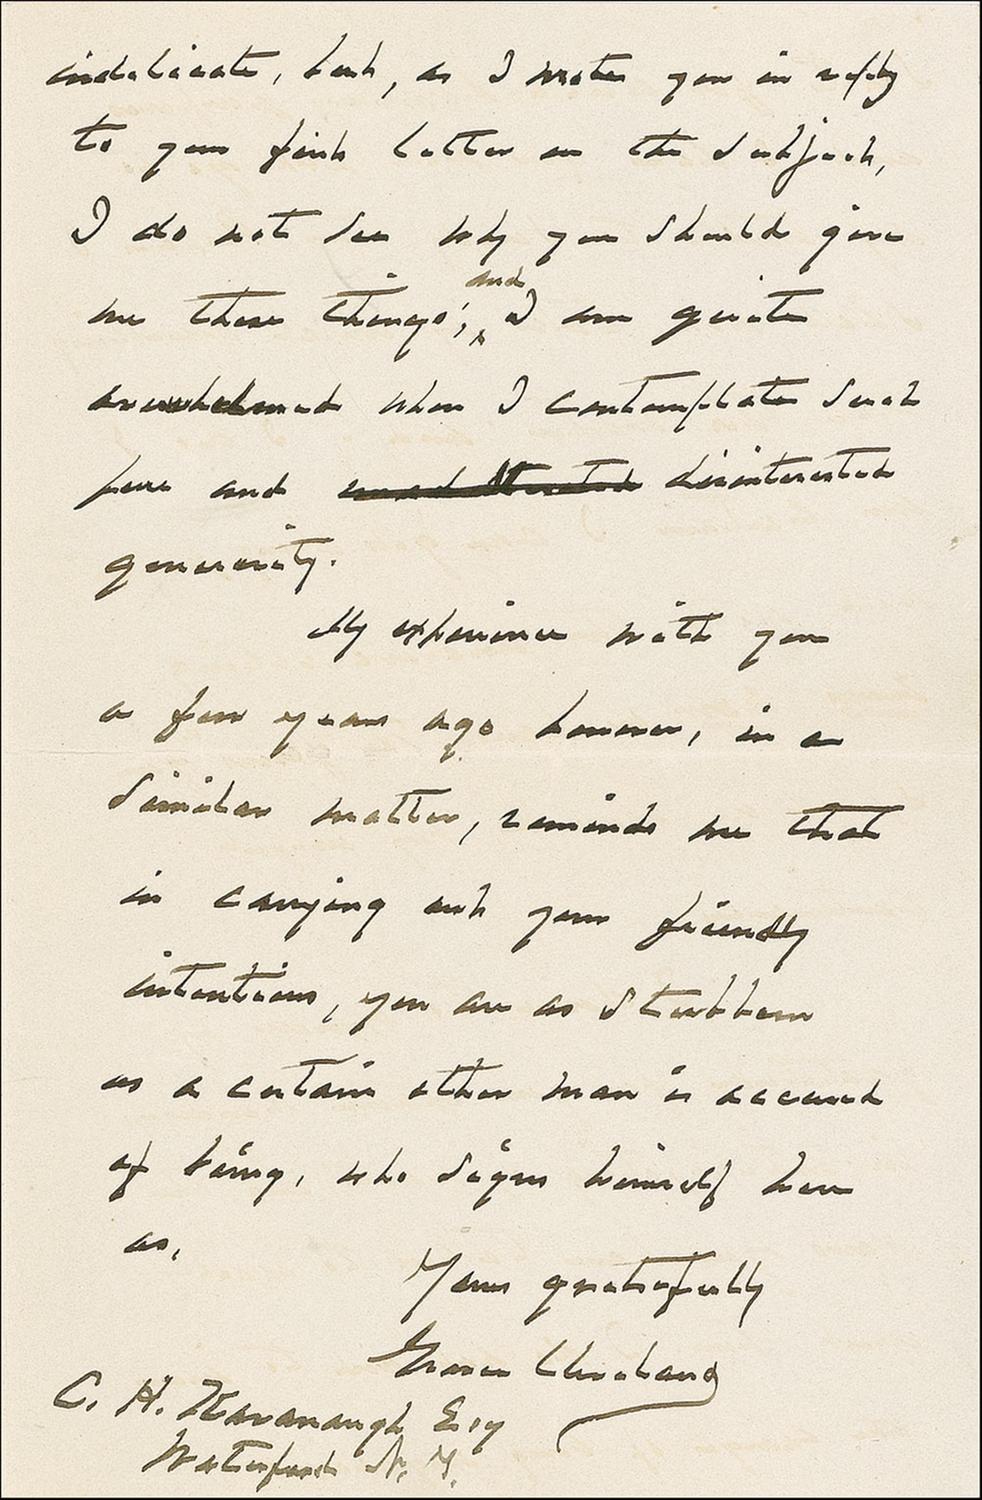 indelicate, but, as I wrote you in reply
to your first letter on the subject,
I do not see why you should give
me these things; and I am quite
overwhelmed when I contemplate such
pure and unadulterated disinterested
generosity.
My experience with you
a few years ago however, in a
similar matter, reminds me that
in carrying out your friendly
intentions, you are as stubborn
as a certain other man is accused
of being, who signs himself here
as,
Yours gratefully
Grover Cleveland
C. H. Kavanaugh Esq
Waterford N. Y.